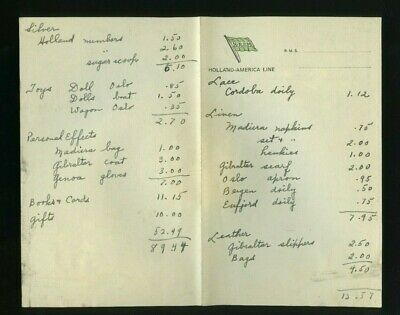 Silver
Holland numbers 1.50
" 2.60
sugar scoop 2.00
6.10
Toys Doll Oslo .85
Dolls boat 1.50
Wagon Oslo .35
2.70
Personal Effects
Madiera bag 1.00
Gibralter coat 3.00
Genoa gloves 3.00
7.00
Books & Cards 11.15
Gifts 10.00
52.49
89.44
R.M.S.
HOLLAND-AMERICA LINE
Lace
Cordoba doily 1.12
Linen
Madiera napkins .75
set & " 2.00
hankies 1.00
Gibralter scarf 2.00
Oslo apron .95
Bergen doily .50
Eufjord doily .75
7.95
Leather
Gibralter slippers 2.50
Bags 2.00
4.50
13.57